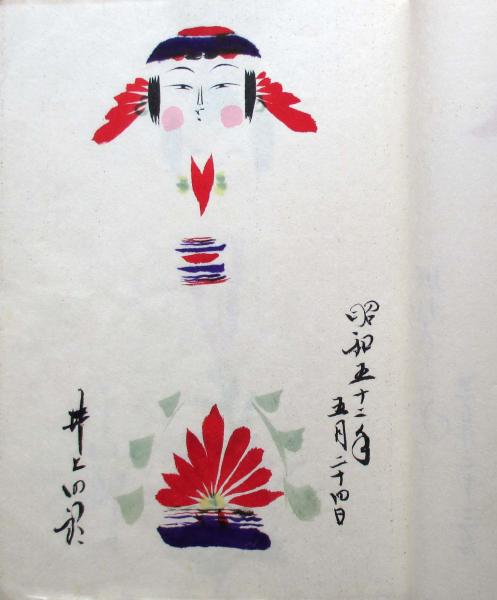 昭和五十二年
五月二十四日
井上四郎